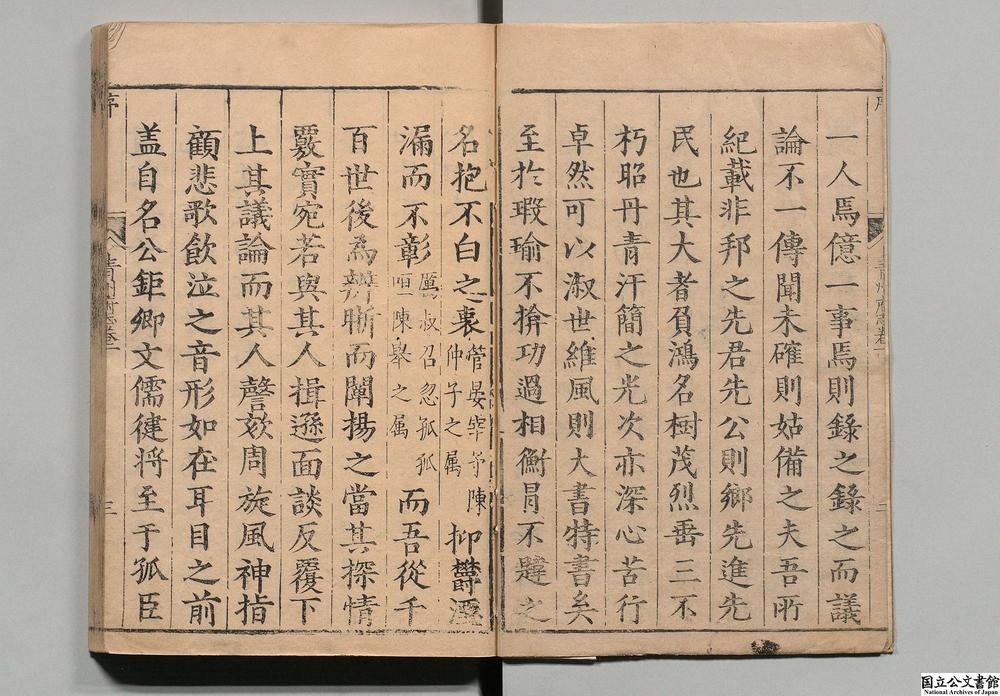 一人焉億一事焉則錄之錄之而議
論不一傳聞未確則姑備之夫吾所
紀載非邦之先君先公則鄉先進先
民也其大者負鴻名樹茂烈垂三不
朽昭丹青汗簡之光次亦深心苦行
卓然可以淑世維風則大書特書矣
至於瑕瑜不揜功過相衡冒不韙之
名抱不白之衷管晏宰予陳仲子之属抑欝湮
漏而不彰厲叔召忽狐咺陳舉之属而吾從千
百世後為辨晰而闡揚之當其探情
覈實宛若與其人揖遜面談反覆下
上其議論而其人謦欬周旋風神指
顧悲歌飲泣之音形如在耳目之前
盖自名公鉅卿文儒健将至于孤臣
序
青州府志卷一
三
国立公文書館
National Archives of Japan